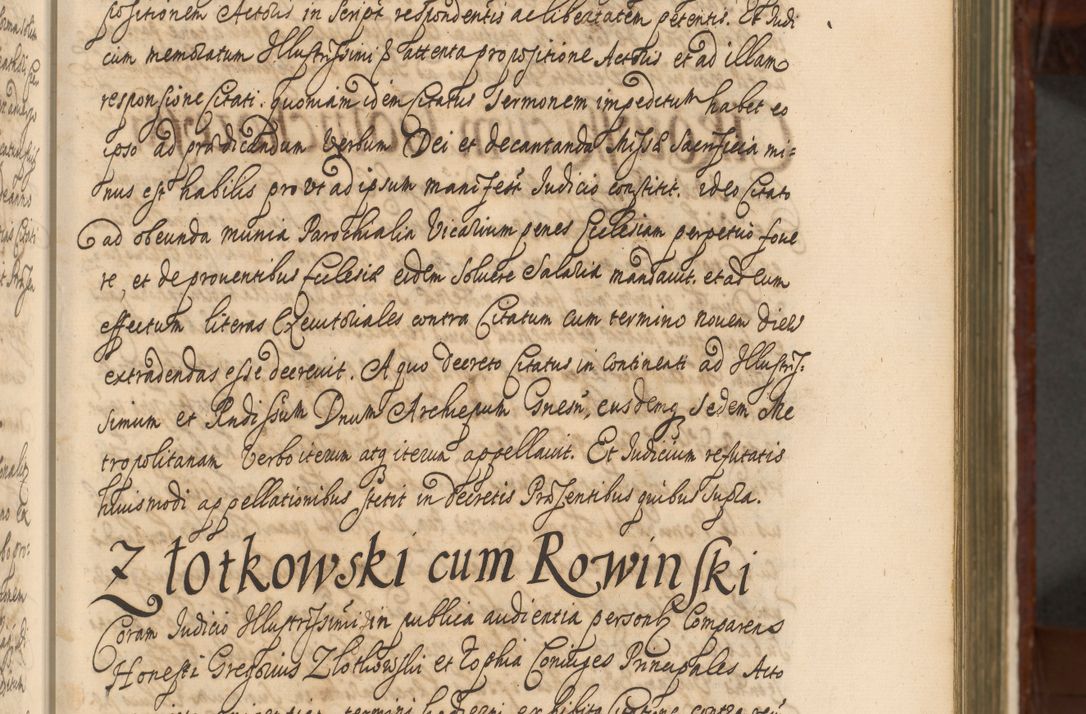 positionem Actoris in Script respondentis ac libertatem petentis. Et Judi
cium memoratum Illustrissimi ꝑ attenta propositione Actoris et ad illam
responsione Citati. quoniam idem Citatus Sermonem impeditum habet eo
ipso ad prædicandum Verbum Dei et decantanda Missæ Sacrificia mi=
nus est habilis prout ad ipsum manifesté Judicio constitit. ideo Citato
ad obeunda munia Parochialia Vicarium penes Ecclesiam perpetuo fove
re, et de proventibus Ecclesiæ eidem solvere Salaria mandavit. et ad eum
effectum literas Executoriales contra Citatum cum termino novem dierum
extradendas esse decrevit. A quo decreto Citatus in continenti ad Illustris=
simum et Rndissum Dnum Archiepum Gnesn, eusdemq Sedem Me
tropolitanam Verbo iterum atq iterum appellavit. Et Judicium refutatis
huiusmodi appellationibus stetit in decretis Præsentibus quibus supra.
Złotkowski cum Rowinski
Coram Judicio Illustrissimi in publica audientia personl Comparens
Honesti Gregorius Zlotkowski et Sophia Coniuges Principales Acto
termini hodierni ex vi bita Citatione contra